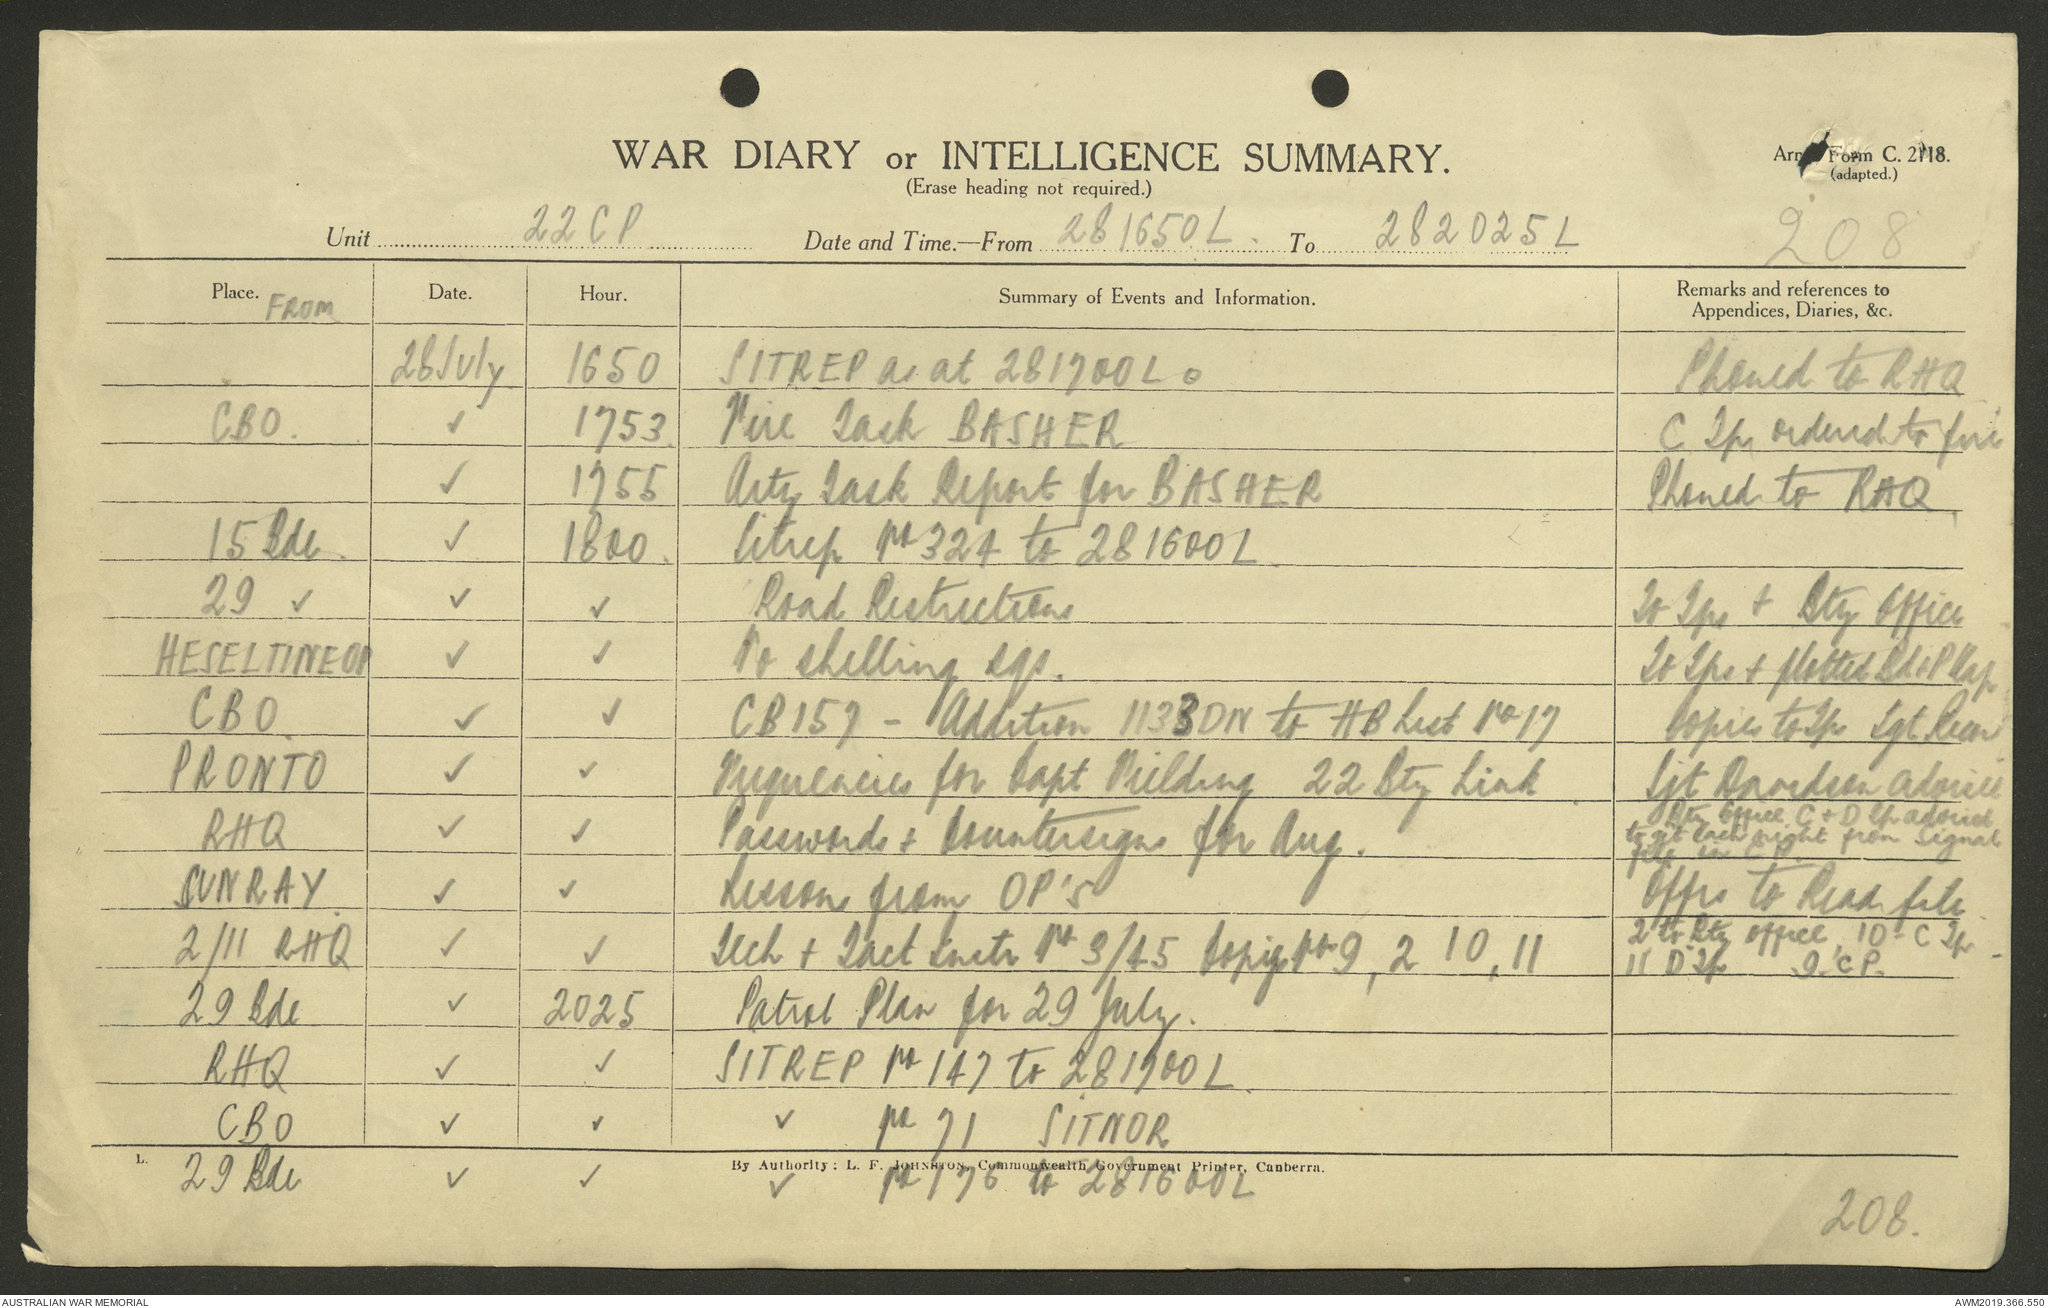 WAR DIARY or INTELLIGENCE SUMMARY.
(Erase heading not required.)
Army Form C. 2118.
(adapted.)
Unit 22 CP Date and Time.—From 281650L. To 282025L
208
Place. FROM Date. Hour. Summary of Events and Information. Remarks and references to
Appendices, Diaries, &c.
28 July 1650 SITREP as at 281700L Phoned to RHQ
CBO. ✓ 1753. Fire Task BASHER C Tps ordered to fire
✓ 1755 Arty Task Report for BASHER Phoned to RHQ
15 Bde. ✓ 1800. Sitrep No 324 to 281600L.
29 ✓ ✓ ✓ Road Restrictions To Tps + Bty Office
HESELTINE OP ✓ ✓ No shelling sgs. To Tps + plotted Map
CBO. ✓ ✓ CB 157 - Addition 1133 DN to HB List No 17 Copies to Tps Sgt
PRONTO ✓ ✓ Frequencies for Capt Fielding 22 Bty Link. Sgt Davidson advised
RHQ ✓ ✓ Passwords + Countersigns for Aug. Bty Office, C + D Tps advised
to get each night from signal
file in C.P.
SUNRAY. ✓ ✓ Lessons from OP's Offrs to Read file.
2/11 RHQ ✓ ✓ Tech + Tact Instr No 3/45 Copies Nos 9, 2 10, 11 2 to Bty Office, 10 - C Tp
11 D Tp 9. C.P.
29 Bde ✓ 2025 Patrol Plan for 29 July.
RHQ ✓ ✓ SITREP No 147 to 281700L.
CBO ✓ ✓ ✓ No 71 SITNOR
L. By Authority: L. F. JOHNSTON, Commonwealth Government Printer, Canberra.
29 Bde ✓ ✓ ✓ No 176 to 281600L
208.
AUSTRALIAN WAR MEMORIAL AWM2019.366.550